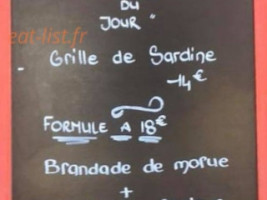 DU
JOUR"
eat-list.fr
Grille de Sardine
-14€
FORMULE A 18€
Brandade de morue
+